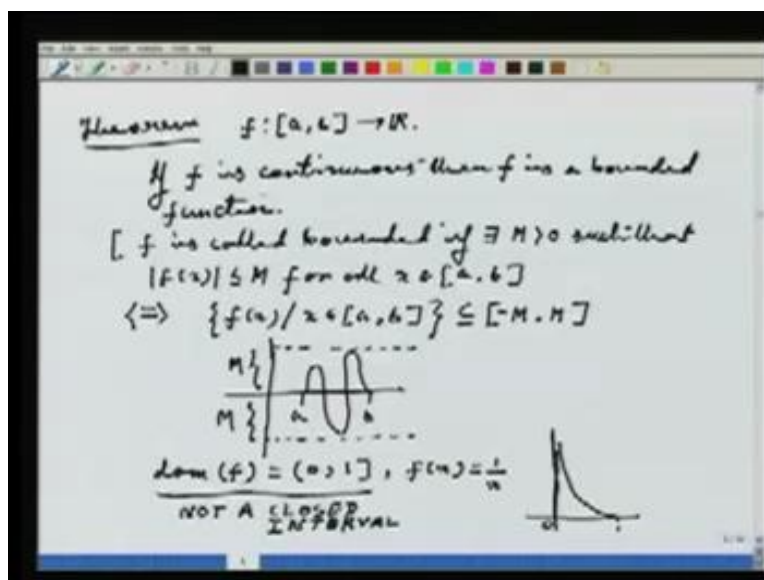 Theorem f : [a, b] → R.
If f is continuous then f is a bounded
function.
[ f is called bounded if ∃ M > 0 such that
|f(x)| ≤ M for all x ∈ [a, b]
<=> {f(x) / x ∈ [a, b]} ⊆ [-M, M]
M {
M { a b
dom (f) = (0, 1], f(x) = 1/x
NOT A CLOSED
INTERVAL
0 1